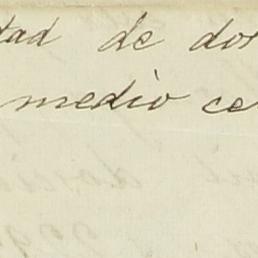 tad de dos
medio ce